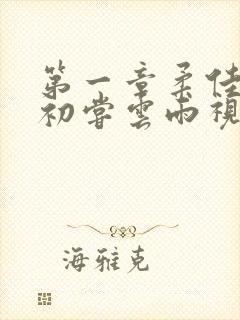 第一章柔佳
初尝雲雨視
海雅克